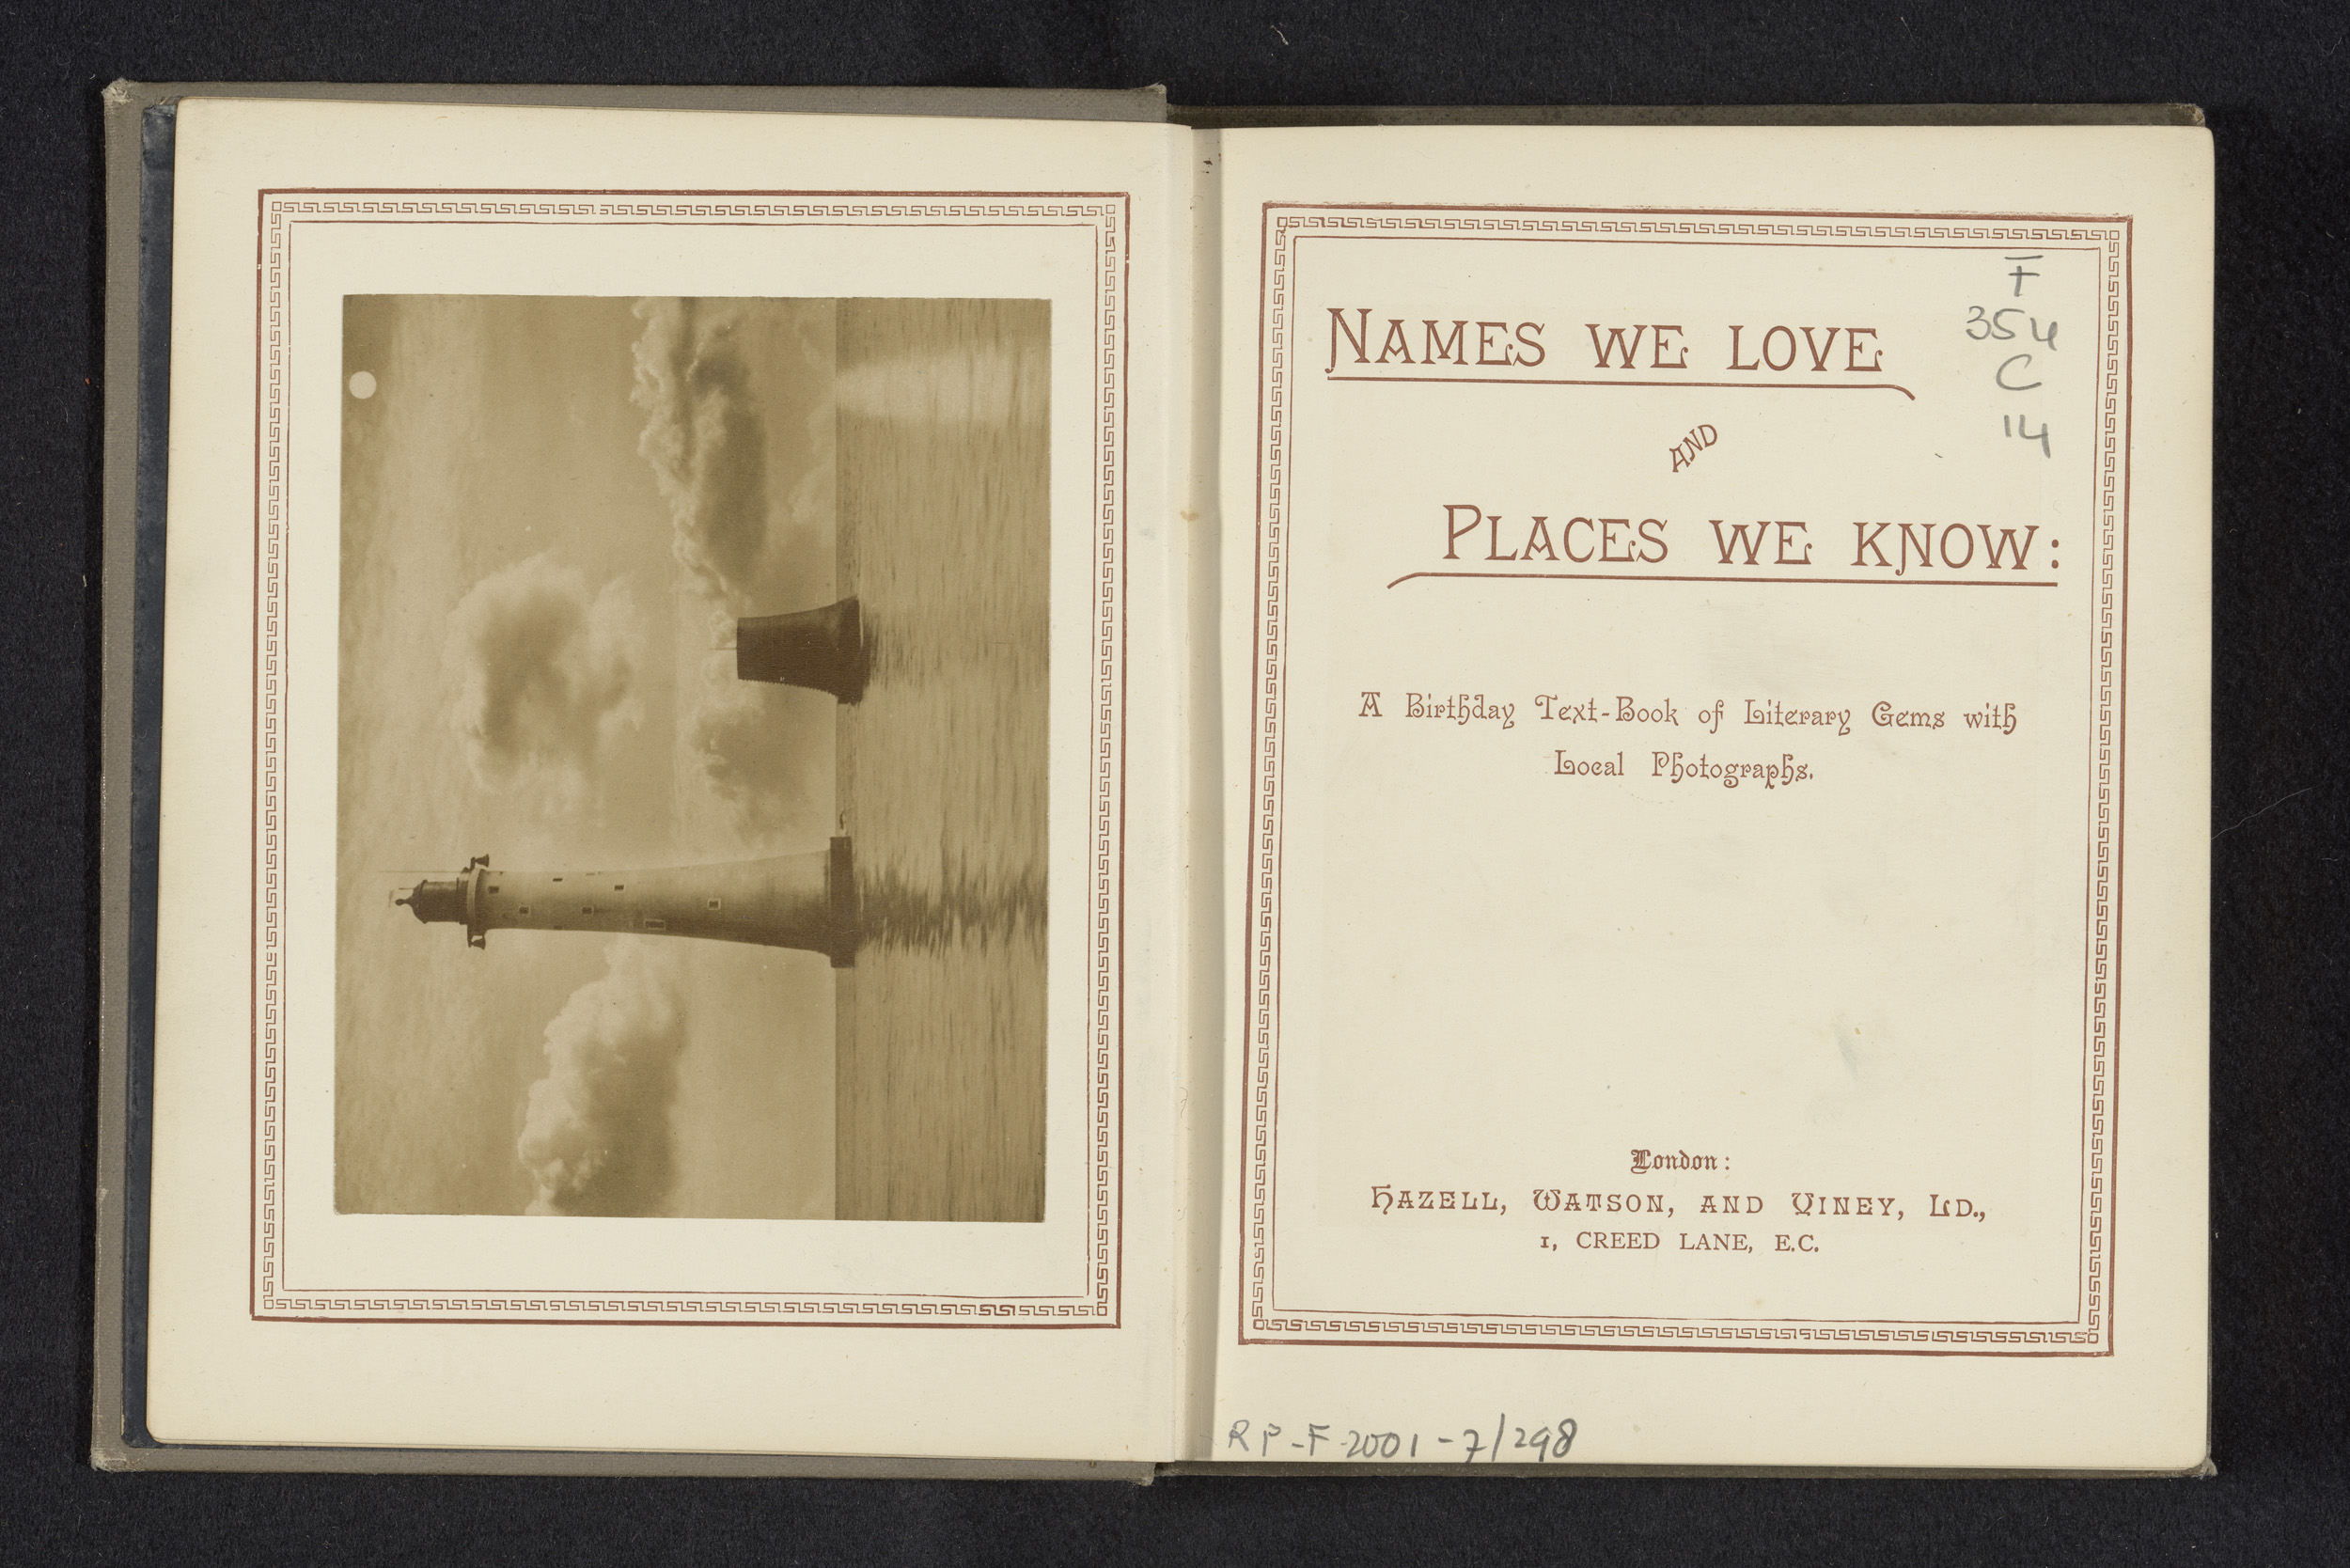 NAMES WE LOVE
AND
PLACES WE KNOW:
A Birthday Text-Book of Literary Gems with
Local Photographs.
London:
HAZELL, WATSON, AND VINEY, LD.,
1, CREED LANE, E.C.
F
354
C
14
RP-F-2001-7/298